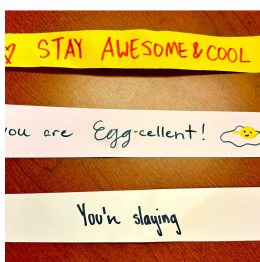 STAY AWESOME & COOL
you are Egg-cellent!
You'r slaying